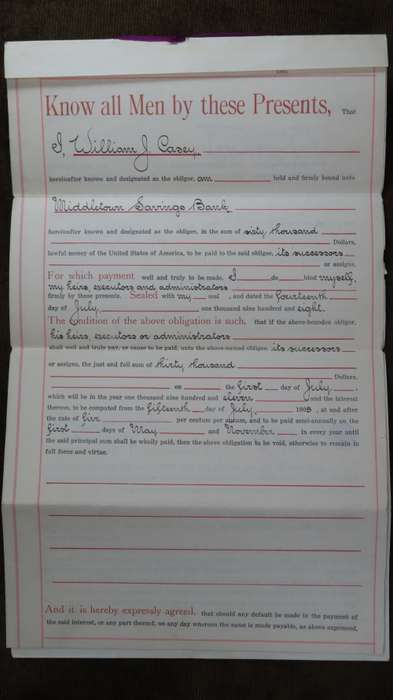 Know all Men by these Presents, That
I, William J Casey,
hereinafter known and designated as the obligor, am held and firmly bound unto
Middletown Savings Bank
hereinafter known and designated as the obligee, in the sum of sixty thousand
Dollars,
lawful money of the United States of America, to be paid to the said obligee, its successors
or assigns.
For which payment well and truly to be made, I do bind myself,
my heirs, executors and administrators
firmly by these presents. Sealed with my seal, and dated the fourteenth
day of July, one thousand nine hundred and eight.
The Condition of the above obligation is such, that if the above-bounden obligor,
his heirs, executors or administrators
shall well and truly pay, or cause to be paid, unto the above-named obligee, its successors
or assigns, the just and full sum of thirty thousand
Dollars,
on the first day of July,
which will be in the year one thousand nine hundred and eleven and the interest
thereon, to be computed from the fifteenth day of July, 1908, at and after
the rate of five per centum per annum, and to be paid semi-annually on the
first days of May and November in every year until
the said principal sum shall be wholly paid, then the above obligation to be void, otherwise to remain in
full force and virtue.
And it is hereby expressly agreed, that should any default be made in the payment of
the said interest, or any part thereof, on any day whereon the same is made payable, as above expressed,